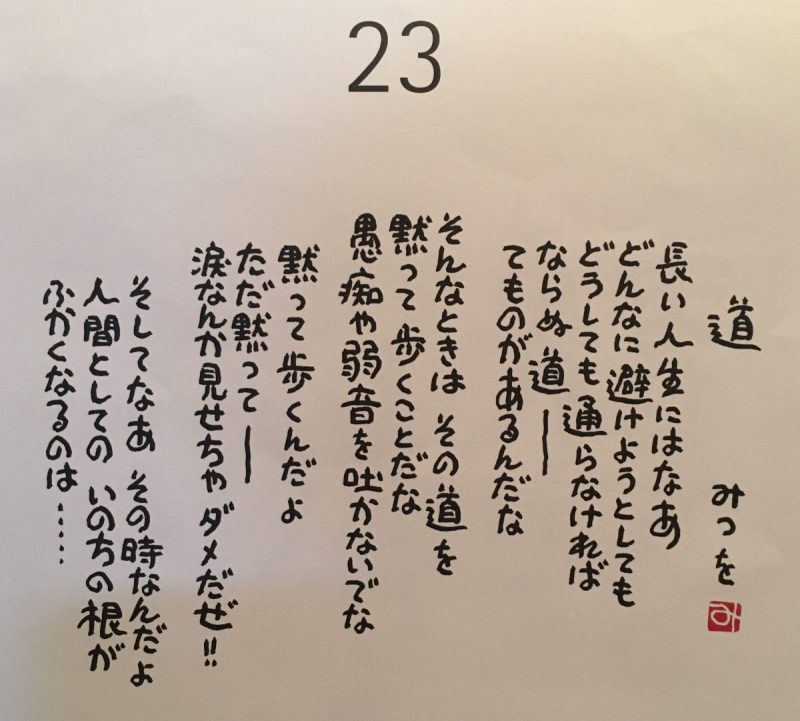 23
道
みつを
み
長い人生にはなあ
どんなに避けようとしても
どうしても通らなければ
ならぬ道―
てものがあるんだな
そんなときは その道を
黙って歩くことだな
愚痴や弱音を吐かないでな
黙って歩くんだよ
ただ黙って―
涙なんか見せちゃダメだぜ!!
そしてなあ その時なんだよ
人間としての いのちの根が
ふかくなるのは……